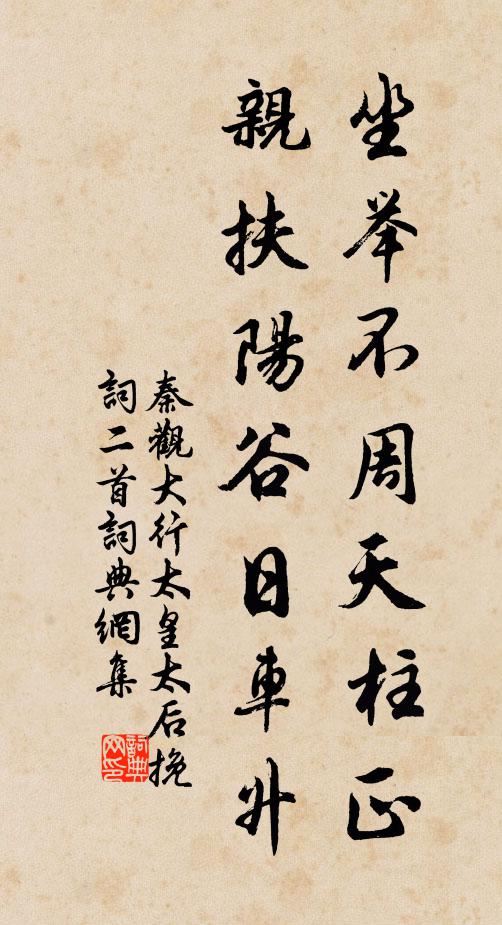 坐举不周天柱正
親扶陽谷日車升
秦觀大行太皇太后挽
詞二首詞典網集
詞典网印